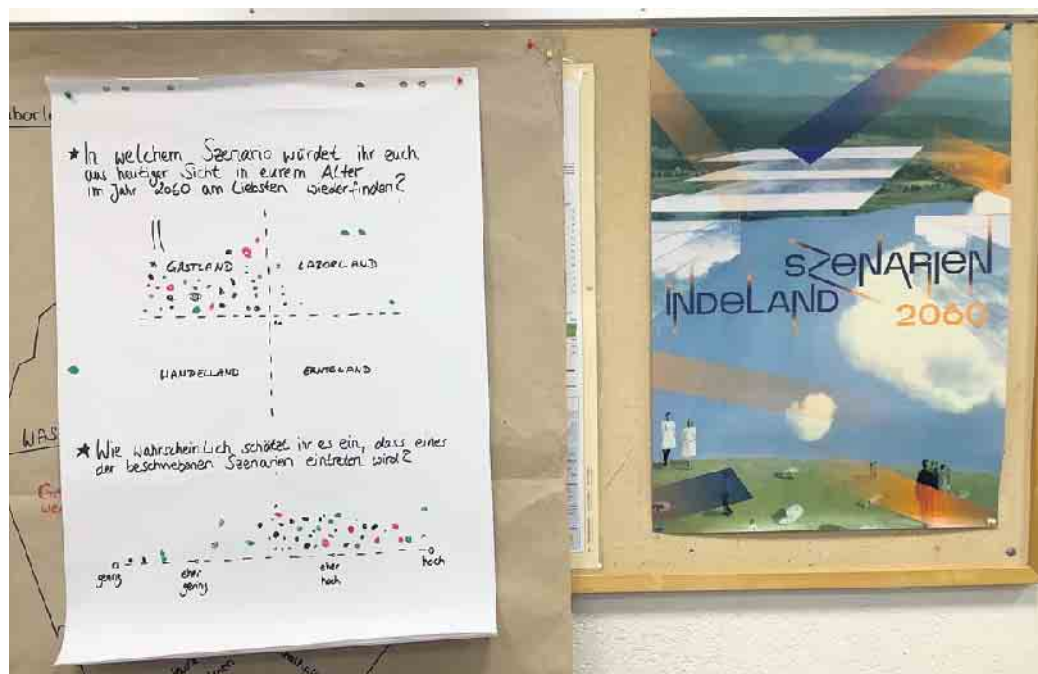 ★ In welchem Szenario würdet ihr euch
aus heutiger Sicht in eurem Alter
im Jahr 2060 am Liebsten wiederfinden?
GASTLAND
LABORLAND
HANDELLAND
ERNTELAND
★ Wie wahrscheinlich schätzt ihr es ein, dass eines
der beschriebenen Szenarien eintreten wird?
gering
eher
gering
eher
hoch
hoch
WAS
SZENARIEN
INDELAND
2060